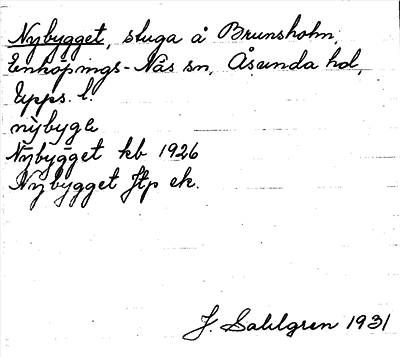 Nybygget, stuga å Brunsholm,
Enköpings-Näs sn, Åsunda hd,
Upps. l.
Nybygget kb 1926
Nybygget Jtp ek.
J. Sahlgren 1931